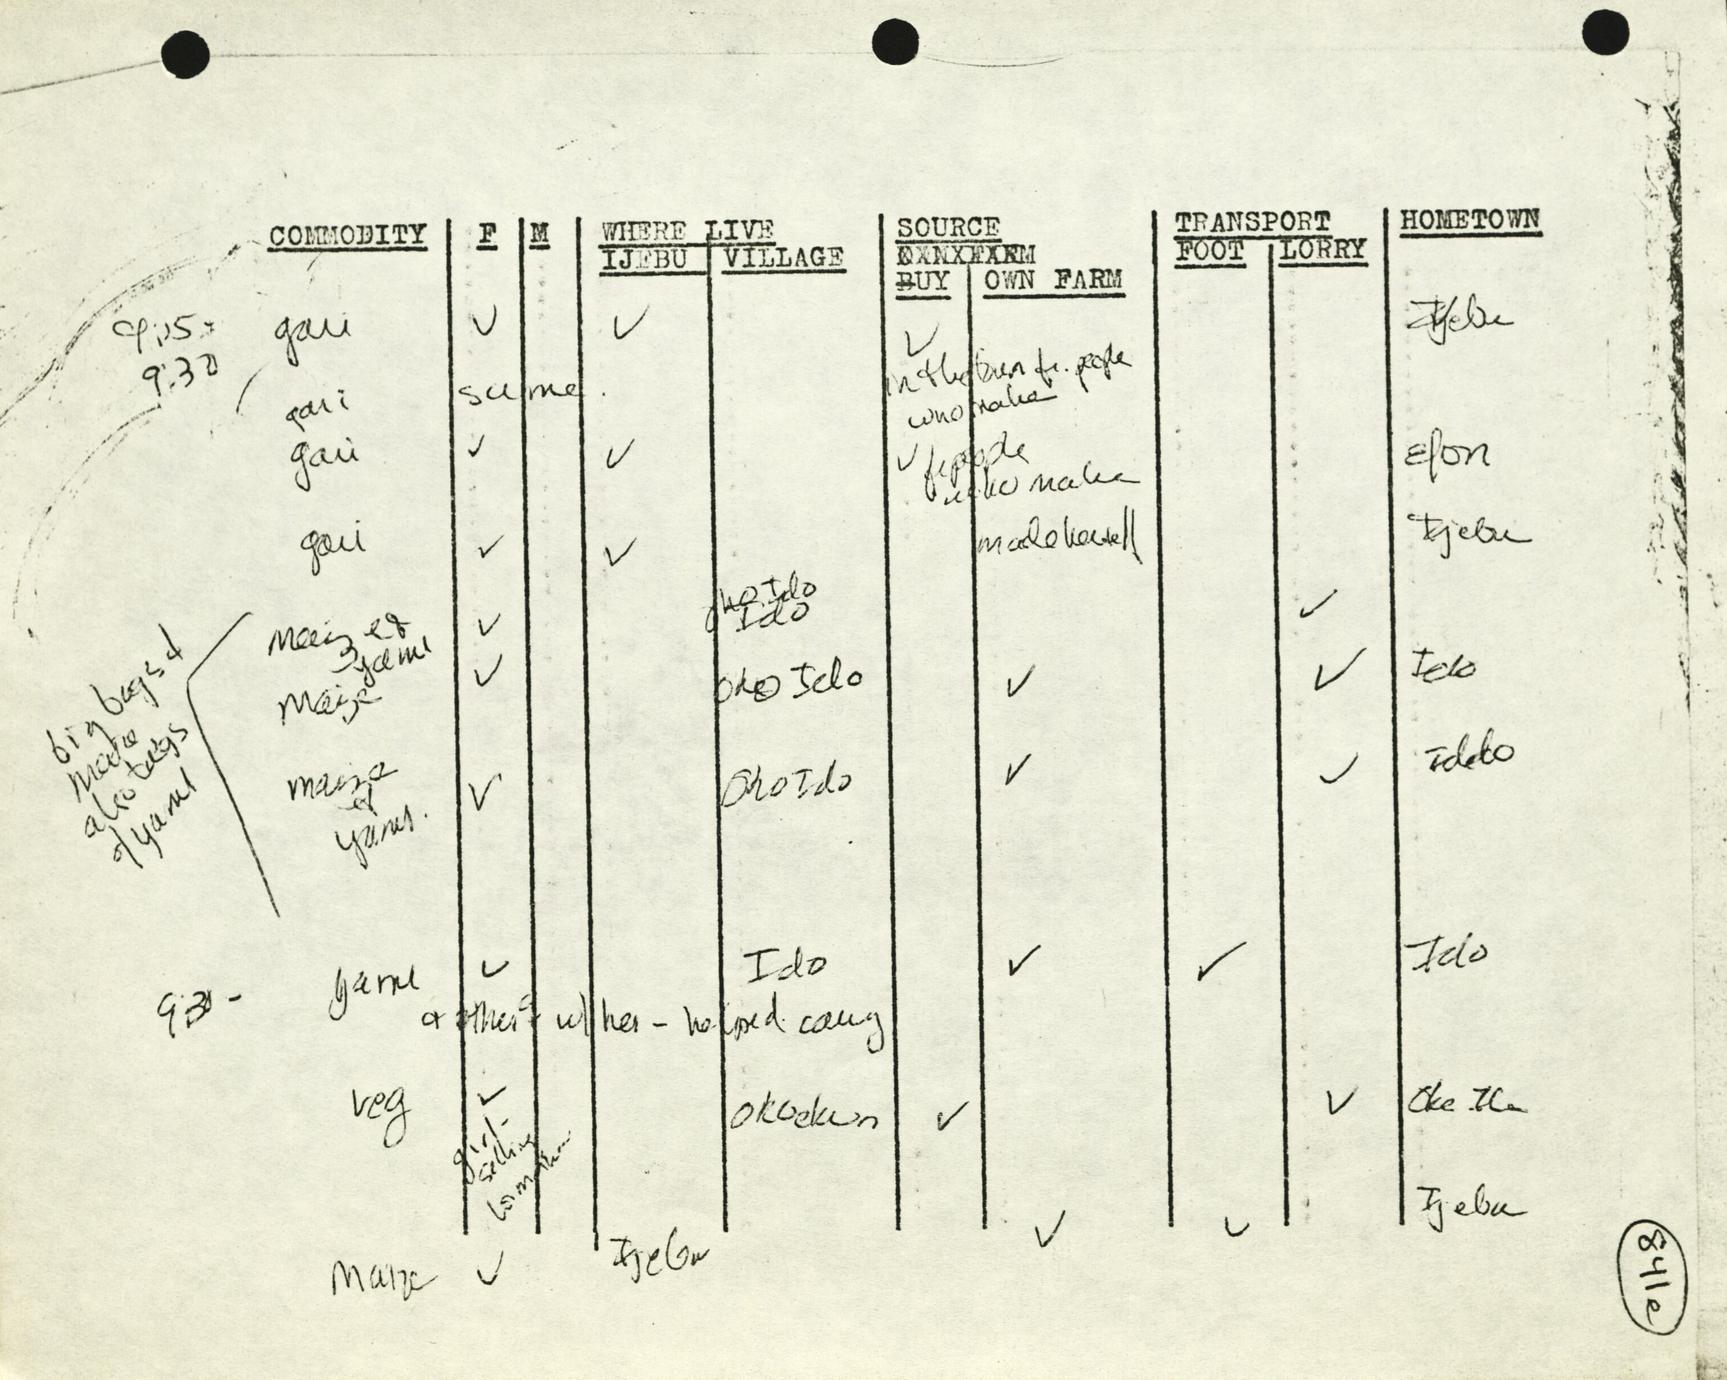 COMMODITY F M WHERE LIVE SOURCE TRANSPORT HOMETOWN
IJEBU VILLAGE OXNXFARM FOOT LORRY
BUY OWN FARM
9:15-
9:30
gari ✓ ✓ ✓ Ijebu
in the town fr. people
who make
gari same.
gari ✓ ✓ ✓ fr people Efon
who make
gari ✓ ✓ made herself Ijebu
Oko Ido
maize & ✓ Ido ✓
yams
maize ✓ Oko Ido ✓ ✓ Ido
big bags of
maize
also bags
of yams
maize ✓ Oko Ido ✓ ✓ Iddo
&
yams.
9:30 - yams ✓ Ido ✓ ✓ Ido
& others w/ her - helped carry
veg ✓ ✓ ✓ Oke Ila
girl-
selling
for mother
maize ✓ Ijebu ✓ ✓ Ijebu
841e